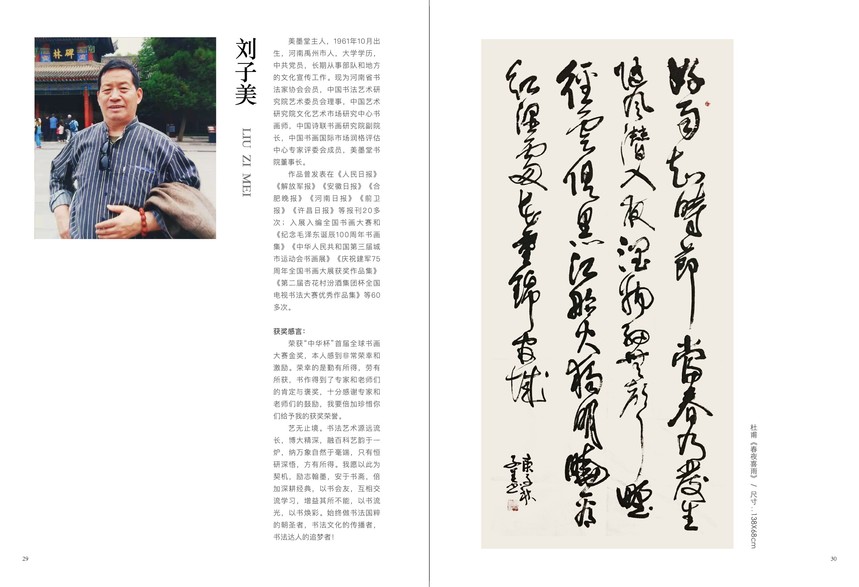 碑林
刘子美
LIU ZI MEI
美墨堂主人，1961年10月出
生，河南禹州市人，大学学历，
中共党员，长期从事部队和地方
的文化宣传工作。现为河南省书
法家协会会员，中国书法艺术研
究院艺术委员会理事，中国艺术
研究院文化艺术市场研究中心书
画师，中国诗联书画研究院副院
长，中国书画国际市场润格评估
中心专家评委会成员，美墨堂书
院董事长。
作品曾发表在《人民日报》
《解放军报》《安徽日报》《合
肥晚报》《河南日报》《前卫
报》《许昌日报》等报刊20多
次；入展入编全国书画大赛和
《纪念毛泽东诞辰100周年书画
集》《中华人民共和国第三届城
市运动会书画展》《庆祝建军75
周年全国书画大展获奖作品集》
《第二届杏花村汾酒集团杯全国
电视书法大赛优秀作品集》等60
多次。
获奖感言：
荣获“中华杯”首届全球书画
大赛金奖，本人感到非常荣幸和
激励。荣幸的是勤有所得，劳有
所获，书作得到了专家和老师们
的肯定与褒奖，十分感谢专家和
老师们的鼓励，我要倍加珍惜你
们给予我的获奖荣誉。
艺无止境。书法艺术源远流
长，博大精深，融百科艺韵于一
炉，纳万象自然于毫端，只有恒
研深悟，方有所得。我愿以此为
契机，励志翰墨，安于书斋，倍
加深研经典，以书会友，互相交
流学习，增益其所不能，以书流
光，以书焕彩。始终做书法国粹
的朝圣者，书法文化的传播者，
书法达人的追梦者！
29
好雨知时节当春乃发生
随风潜入夜润物细无声野
径云俱黑江船火独明晓看
红湿处花重锦官城
杜甫《春夜喜雨》 / 尺寸：138X68cm
30